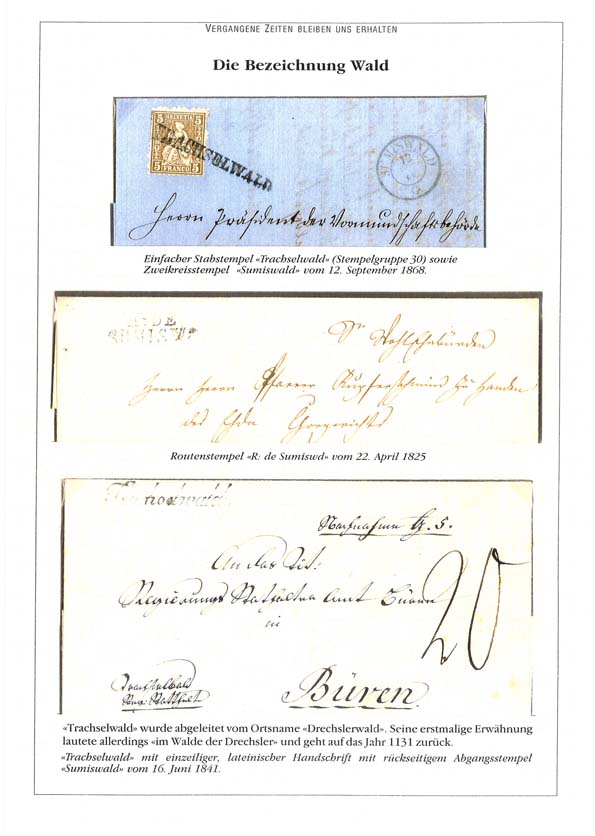 VERGANGENE ZEITEN BLEIBEN UNS ERHALTEN
Die Bezeichnung Wald
5 HELVETIA 5
5 FRANCO 5
TRACHSELWALD
SUMISWALD
12
Herrn Präsident der Vormundschaftsbehörde
Einfacher Stabstempel «Trachselwald» (Stempelgruppe 30) sowie
Zweikreisstempel «Sumiswald» vom 12. September 1868.
R: DE
SUMISWD
Sr Wohlehrwürden
Herrn Herrn Pfarrer Kupferschmid zu Handen
des Chorgerichts
Routenstempel «R: de Sumiswd» vom 22. April 1825
Trachselwald
Nachnahme 5.
An das Tit:
Regierungs Statthalter Amt Büren
in
20
Trachselwald
Büren
«Trachselwald» wurde abgeleitet vom Ortsname «Drechslerwald». Seine erstmalige Erwähnung
lautete allerdings «im Walde der Drechsler» und geht auf das Jahr 1131 zurück.
«Trachselwald» mit einzeiliger, lateinischer Handschrift mit rückseitigem Abgangsstempel
«Sumiswald» vom 16. Juni 1841.